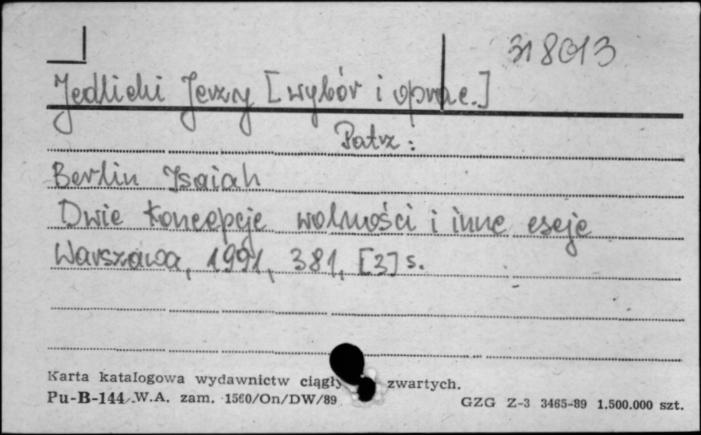 318013
Jedlicki Jerzy [wybór i oprac.]
Patrz:
Berlin Isaiah
Dwie koncepcje wolności i inne eseje
Warszawa, 1991, 381, [3] s.
Karta katalogowa wydawnictw ciągły zwartych.
Pu-B-144 W.A. zam. 1560/On/DW/89 GZG Z-3 3465-89 1.500.000 szt.